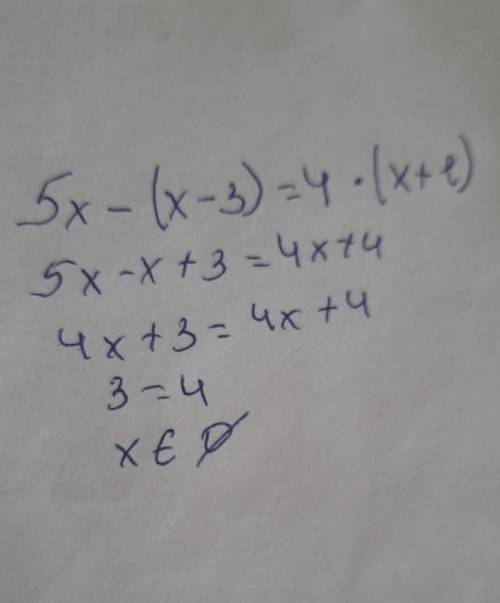 5x - (x - 3) = 4 · (x + 1)
5x - x + 3 = 4x + 4
4x + 3 = 4x + 4
3 = 4
x ∈ ∅